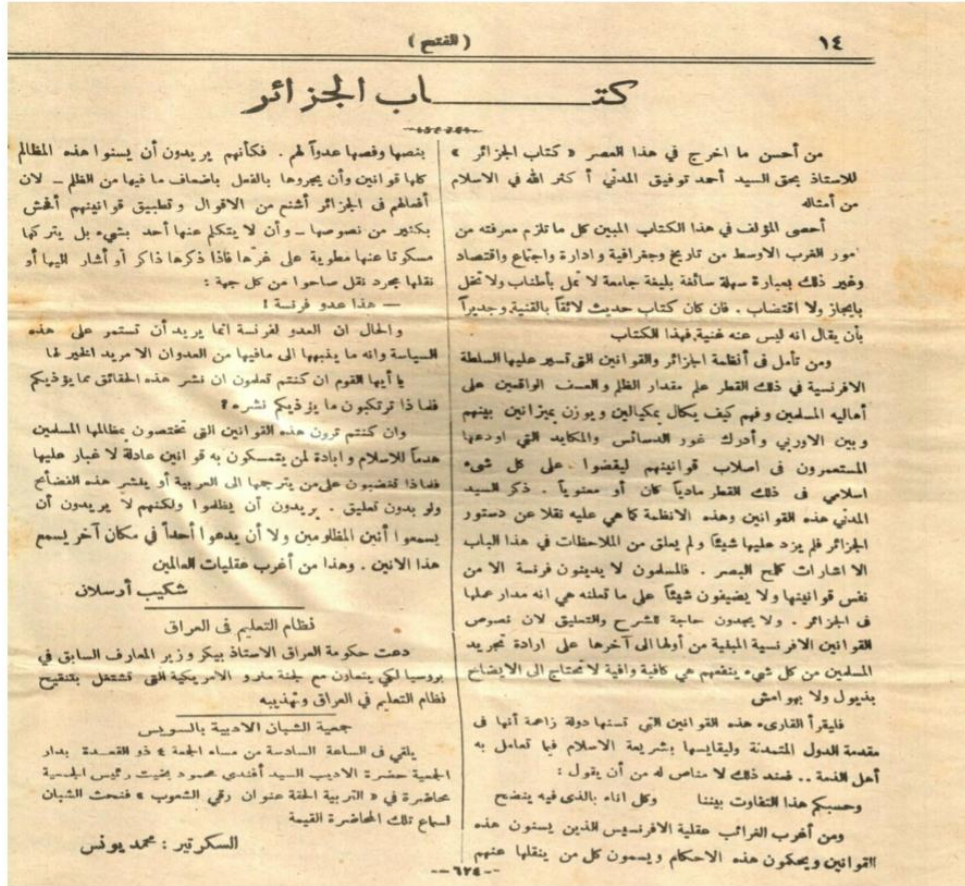 ١٤
( الفتح )
كتـــاب الجزائر
من أحسن ما اخرج في هذا العصر « كتاب الجزائر »
للاستاذ بحق السيد أحمد توفيق المدني أكثر الله في الاسلام
من أمثاله
أحصى المؤلف في هذا الكتاب المبين كل ما تلزم معرفته من
أمور الغرب الاوسط من تاريخ وجغرافية وادارة واجتماع واقتصاد
وغير ذلك بعبارة سهلة سائغة بليغة جامعة لا تمل بأطناب ولا تخل
بايجاز ولا اقتضاب . فان كان كتاب حديث لائقاً بالقنية وجديراً
بأن يقال انه ليس عنه غنية فهذا الكتاب
ومن تأمل في أنظمة الجزائر والقوانين التي تسير عليها السلطة
الافرنسية في ذلك القطر علم مقدار الظلم والعسف الواقعين على
أهاليه المسلمين وفهم كيف يكال بمكيالين ويوزن بميزانين بينهم
وبين الاوربي وأدرك غور الدسائس والمكايد التي اودعها
المستعمرون في اصلاب قوانينهم ليقضوا على كل شيء
اسلامي في ذلك القطر مادياً كان أو معنوياً . ذكر السيد
المدني هذه القوانين وهذه الانظمة كما هي عليه نقلا عن دستور
الجزائر فلم يزد عليها شيئاً ولم يعلق من الملاحظات في هذا الباب
الا اشارات كلمح البصر . فالمسلمون لا يدينون فرنسة الا من
نفس قوانينها ولا يضيفون شيئاً على ما تعلنه هي انه مدار عملها
في الجزائر . ولا يجدون حاجة للشرح والتعليق لان نصوص
القوانين الافرنسية المبنية من أولها الى آخرها على ارادة تجريد
المسلمين من كل شيء ينفعهم هي كافية وافية لا تحتاج الى الايضاح
بذيول ولا بهوامش
فليقرأ القارىء هذه القوانين التي تسنها دولة زاعمة أنها في
مقدمة الدول المتمدنة وليقايسها بشريعة الاسلام فيما تعامل به
أهل الذمة .. فعند ذلك لا مناص له من أن يقول :
وحسبكم هذا التفاوت بيننا وكل اناء بالذى فيه ينضح
ومن أغرب الغرائب عقلية الافرنسيس الذين يسنون هذه
القوانين ويحكون هذه الاحكام ويسمون كل من ينقلها عنهم
بنصها وفصها عدواً لهم . فكأنهم يريدون أن يسنوا هذه المظالم
كلها قوانين وأن يجروها بالفعل باضعاف ما فيها من الظلم – لان
أفعالهم في الجزائر أشنع من الاقوال وتطبيق قوانينهم أفحش
بكثير من نصوصها – وأن لا يتكلم عنها أحد بشيء بل يتركها
مسكوتا عنها مطوية على غرّها فاذا ذكرها ذاكر أو أشار اليها أو
نقلها مجرد نقل صاحوا من كل جهة :
– هذا عدو فرنسة !
والحال ان العدو لفرنسة انما يريد أن تستمر على هذه
السياسة وانه ما ينبهها الى ما فيها من العدوان الا مريد الخير لها
يا أيها القوم ان كنتم تعلمون ان نشر هذه الحقائق مما يؤذيكم
فلماذا ترتكبون ما يؤذيكم نشره ؟
وان كنتم ترون هذه القوانين التي تختصون بمظالمها المسلمين
هدماً للاسلام وابادة لمن يتمسكون به قوانين عادلة لا غبار عليها
فلماذا تغضبون على من يترجمها الى العربية أو ينشر هذه الفضائح
ولو بدون تعليق . يريدون أن يظلموا ولكنهم لا يريدون أن
يسمعوا أنين المظلومين ولا أن يدعوا أحداً في مكان آخر يسمع
هذا الانين . وهذا من أغرب عقليات العالمين
شكيب أرسلان
نظام التعليم في العراق
دعت حكومة العراق الاستاذ بيكر وزير المعارف السابق في
بروسيا لكي يتعاون مع لجنة منرو الامريكية التي تشتغل بتنقيح
نظام التعليم في العراق وتهذيبه
جمعية الشبان الادبية بالسويس
يلقي في الساعة السادسة من مساء الجمعة ٤ ذو القعدة بدار
الجمعية حضرة الاديب السيد أفندي محمود بخيت رئيس الجمعية
محاضرة في « التربية الحقة عنوان رقي الشعوب » فنحث الشبان
لسماع تلك المحاضرة القيمة
السكرتير : محمد يونس
– ٦٢٤ –